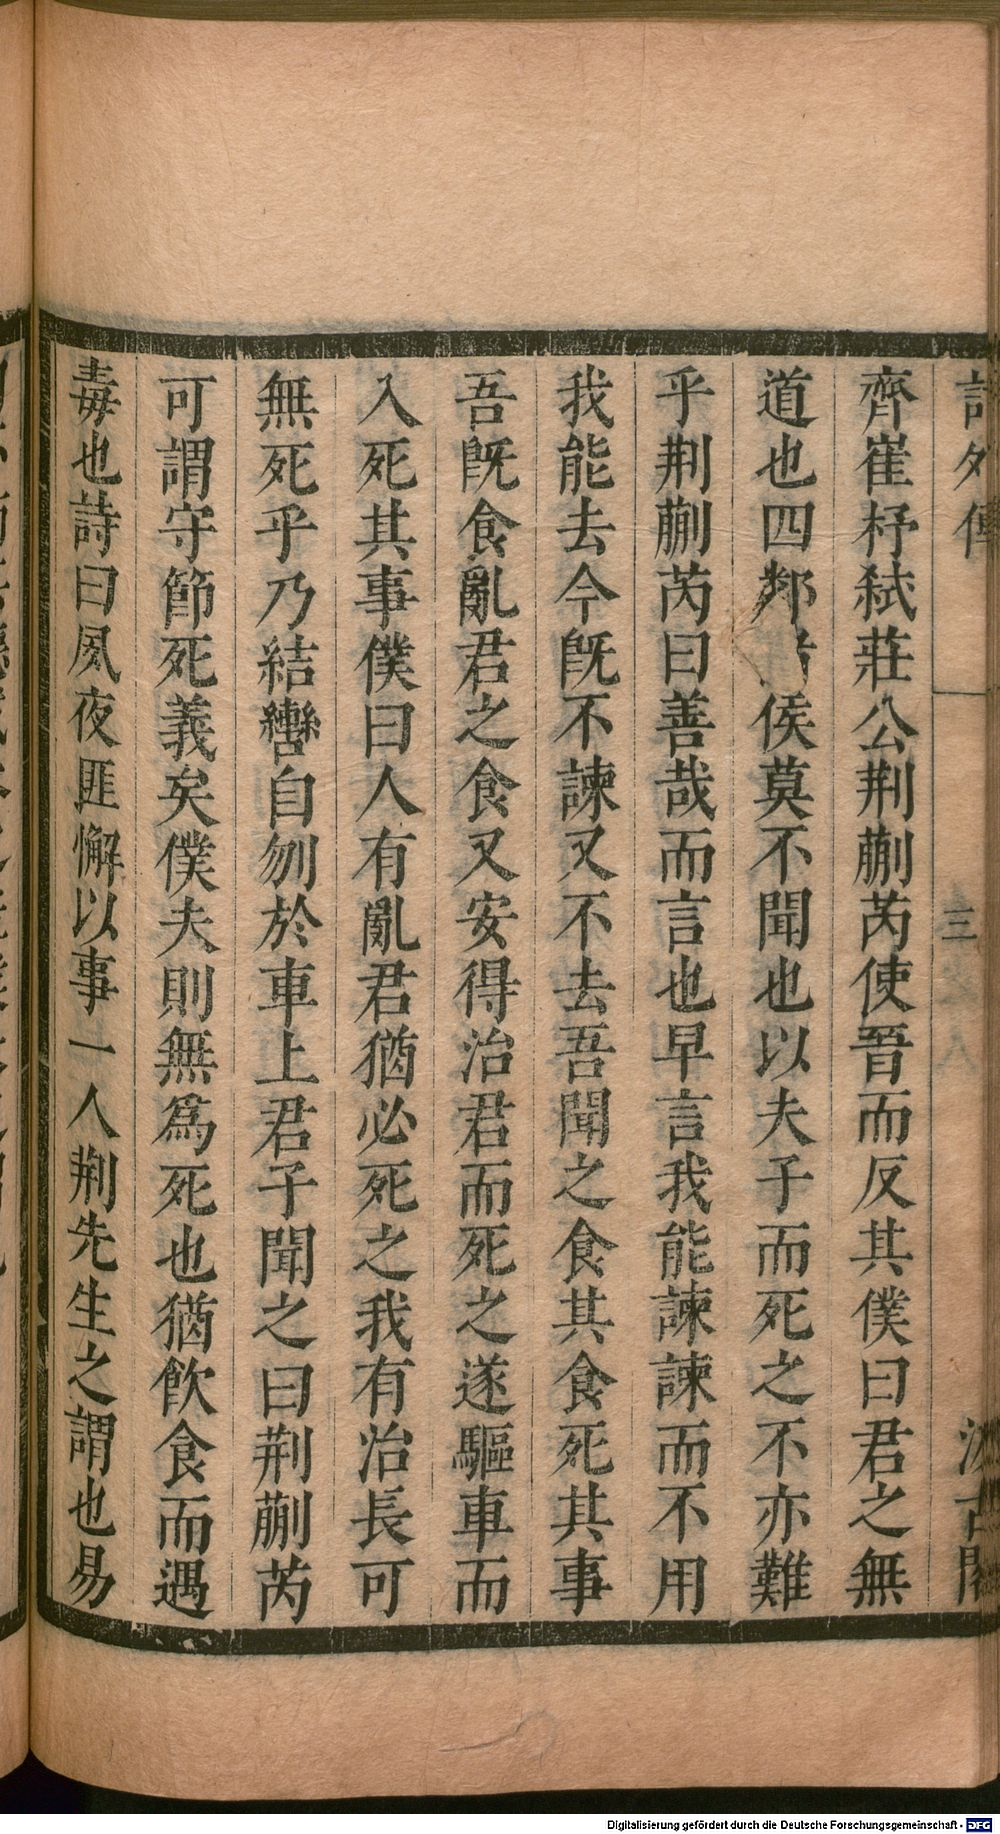 詩外傳
三
汲古閣
齊崔杼弑莊公荆蒯芮使晉而反其僕曰君之無
道也四鄰侯莫不聞也以夫子而死之不亦難
乎荆蒯芮曰善哉而言也早言我能諫諫而不用
我能去今旣不諫又不去吾聞之食其食死其事
吾旣食亂君之食又安得治君而死之遂驅車而
入死其事僕曰人有亂君猶必死之我有治長可
無死乎乃結轡自刎於車上君子聞之曰荆蒯芮
可謂守節死義矣僕夫則無爲死也猶飮食而遇
毒也詩曰夙夜匪懈以事一人荆先生之謂也易
Digitalisierung gefördert durch die Deutsche Forschungsgemeinschaft - DFG